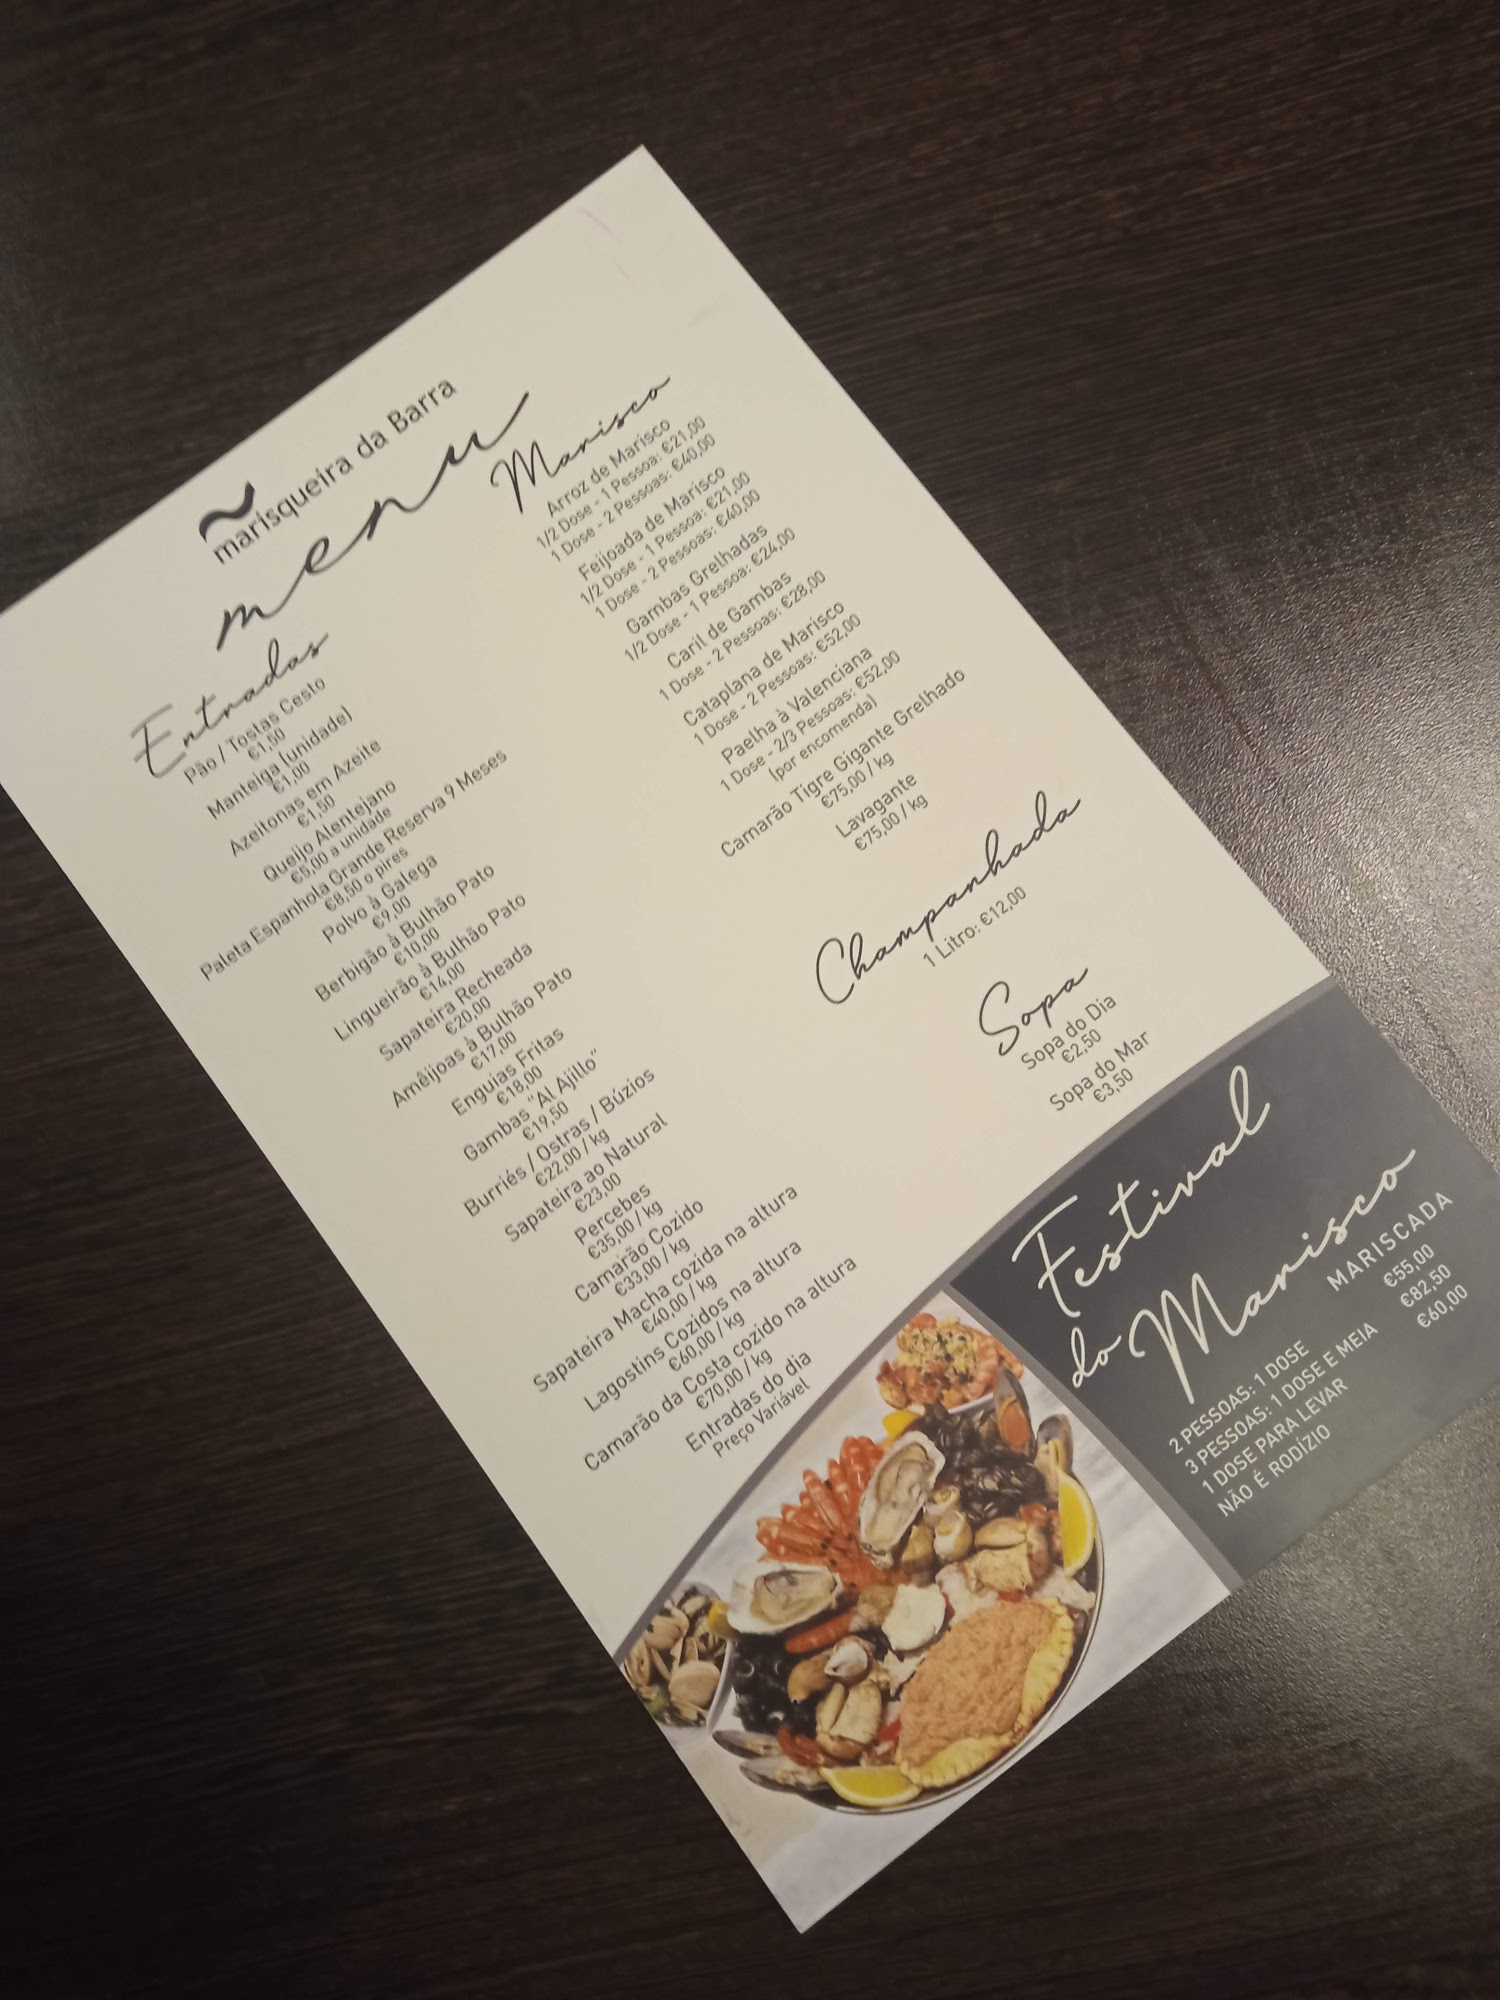 marisqueira da Barra
menu
Entradas
Pão / Tostas Cesto
€1,50
Manteiga (unidade)
€1,00
Azeitonas em Azeite
€1,50
Queijo Alentejano
€5,00 a unidade
Paleta Espanhola Grande Reserva 9 Meses
€8,50 o pires
Polvo à Galega
€9,00
Berbigão à Bulhão Pato
€10,00
Lingueirão à Bulhão Pato
€14,00
Sapateira Recheada
€20,00
Amêijoas à Bulhão Pato
€17,00
Enguias Fritas
€18,00
Gambas "Al Ajillo"
€19,50
Burriés / Ostras / Búzios
€22,00 / kg
Sapateira ao Natural
€23,00
Percebes
€35,00 / kg
Camarão Cozido
€33,00 / kg
Sapateira Macha cozida na altura
€40,00 / kg
Lagostins Cozidos na altura
€60,00 / kg
Camarão da Costa cozido na altura
€70,00 / kg
Entradas do dia
Preço Variável
Marisco
Arroz de Marisco
1/2 Dose - 1 Pessoa: €21,00
1 Dose - 2 Pessoas: €40,00
Feijoada de Marisco
1/2 Dose - 1 Pessoa: €21,00
1 Dose - 2 Pessoas: €40,00
Gambas Grelhadas
1/2 Dose - 1 Pessoa: €24,00
Caril de Gambas
1 Dose - 2 Pessoas: €28,00
Cataplana de Marisco
1 Dose - 2 Pessoas: €52,00
Paelha à Valenciana
1 Dose - 2/3 Pessoas: €52,00
(por encomenda)
Camarão Tigre Gigante Grelhado
€75,00 / kg
Lavagante
€75,00 / kg
Champanhada
1 Litro: €12,00
Sopa
Sopa do Dia
€2,50
Sopa do Mar
€3,50
Festival
do Marisco
MARISCADA
2 PESSOAS: 1 DOSE €55,00
3 PESSOAS: 1 DOSE E MEIA €82,50
1 DOSE PARA LEVAR €60,00
NÃO É RODÍZIO